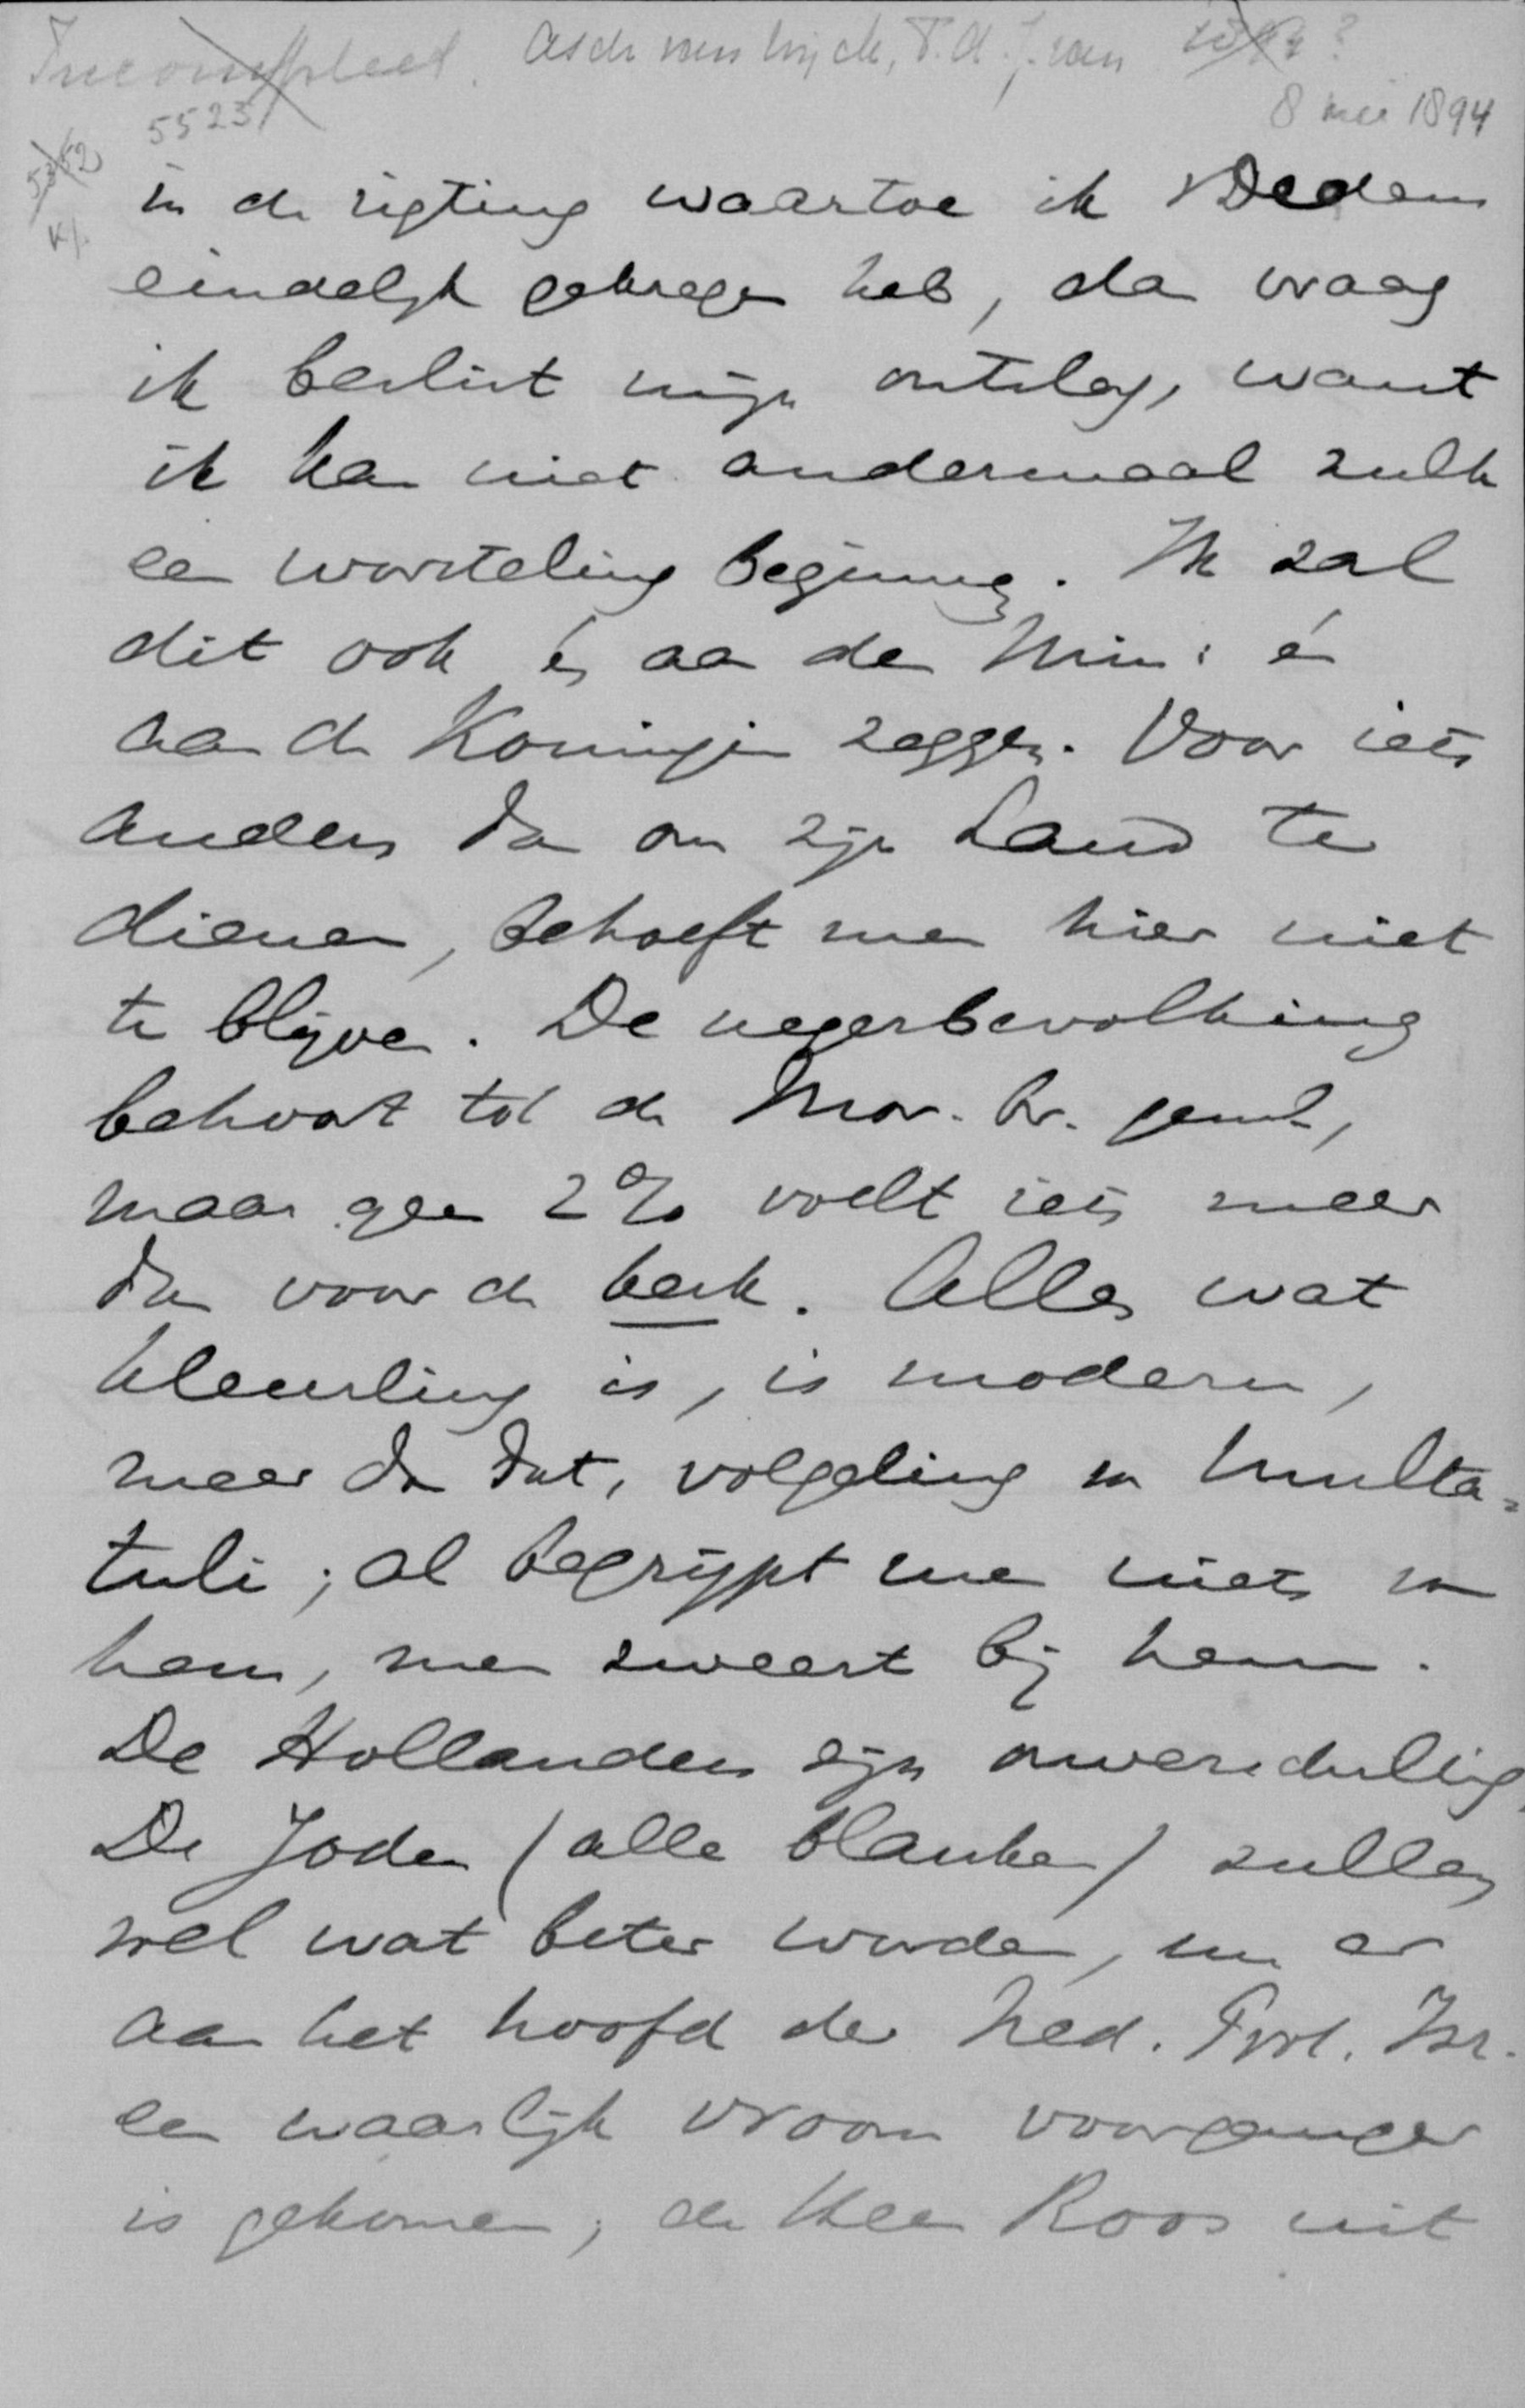 Incompleet. Asch van Wijck, T.A.J. van
5523
8 mei 1894
in de rigting waartoe ik v Dedem
eindelijk gekregen heb, dan vraag
ik beslist mijn ontslag, want
ik kan niet andermaal zulk
een worsteling beginnen. Ik zal
dit ook én aan den Min: én
aan de Koningin zeggen. Voor iets
anders dan om zijn Land te
dienen, behoeft men hier niet
te blijven. De negerbevolking
behoort tot de Mor. br. gemte,
maar geen 2% voelt iets meer
dan voor de kerk. Alles wat
kleurling is, is modern,
meer dan dat, volgeling van Multa=
tuli; al begrijpt men niets van
hem, men zweert bij hem.
De Hollanders zijn onverschillig.
De Joden (alle blanken) zullen
wel wat beter worden, nu er
aan het hoofd der Ned. Port. Isr.
een waarlijk vroom voorganger
is gekomen; de Heer Roos uit